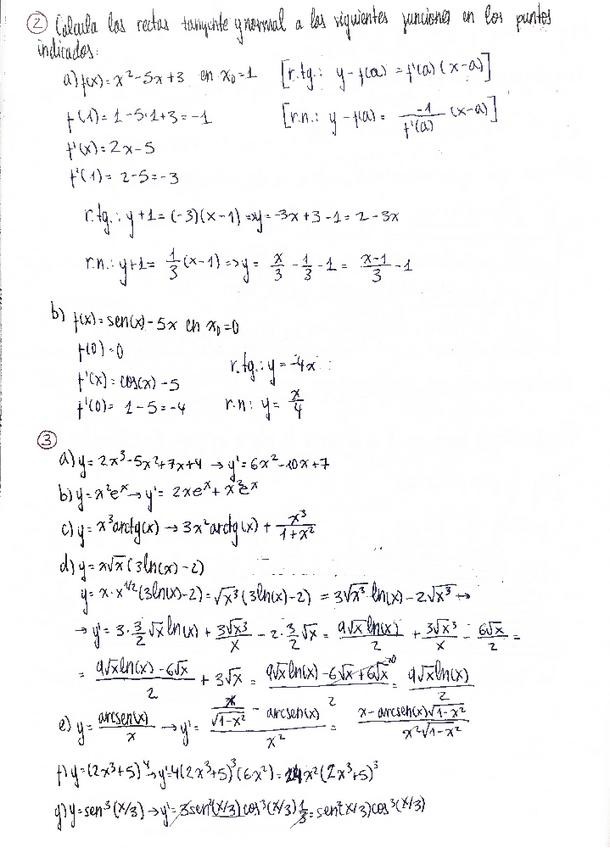 ② Calcula las rectas tangente y normal a las siguientes funciones en los puntos
indicados:
a) f(x) = x² - 5x + 3 en x₀ = 1 [r.tg.: y - f(a) = f'(a) (x-a)]
f(1) = 1 - 5·1 + 3 = -1 [r.n.: y - f(a) = -1/f'(a) (x-a)]
f'(x) = 2x - 5
f'(1) = 2 - 5 = -3
r.tg.: y + 1 = (-3)(x-1) => y = -3x + 3 - 1 = 2 - 3x
r.n.: y + 1 = 1/3 (x-1) => y = x/3 - 1/3 - 1 = (x-1)/3 - 1
b) f(x) = sen(x) - 5x en x₀ = 0
f(0) = 0
r.tg.: y = -4x
f'(x) = cos(x) - 5
f'(0) = 1 - 5 = -4 r.n: y = x/4
③
a) y = 2x³ - 5x² + 7x + 4 → y' = 6x² - 10x + 7
b) y = x²eˣ → y' = 2xeˣ + x²eˣ
c) y = x³ arctg(x) → 3x² arctg(x) + x³/(1+x²)
d) y = x√x (3ln(x) - 2)
y = x·x^1/2 (3ln(x) - 2) = √x³ (3ln(x) - 2) = 3√x³ ln(x) - 2√x³ →
→ y' = 3·3/2 √x ln(x) + 3√x³/x - 2·3/2 √x = 9√x ln(x)/2 + 3√x³/x - 6√x/2 =
= (9√x ln(x) - 6√x)/2 + 3√x = (9√x ln(x) - 6√x + 6√x)/2 = 9√x ln(x)/2
e) y = arcsen(x)/x → y' = (x/√(1-x²) - arcsen(x))/x² = (x - arcsen(x)√(1-x²))/(x²√(1-x²))
f) y = (2x³+5)⁴ → y' = 4(2x³+5)³(6x²) = 24x²(2x³+5)³
g) y = sen³(x/3) → y' = 3sen²(x/3)cos³(x/3) 1/3 = sen²(x/3)cos³(x/3)